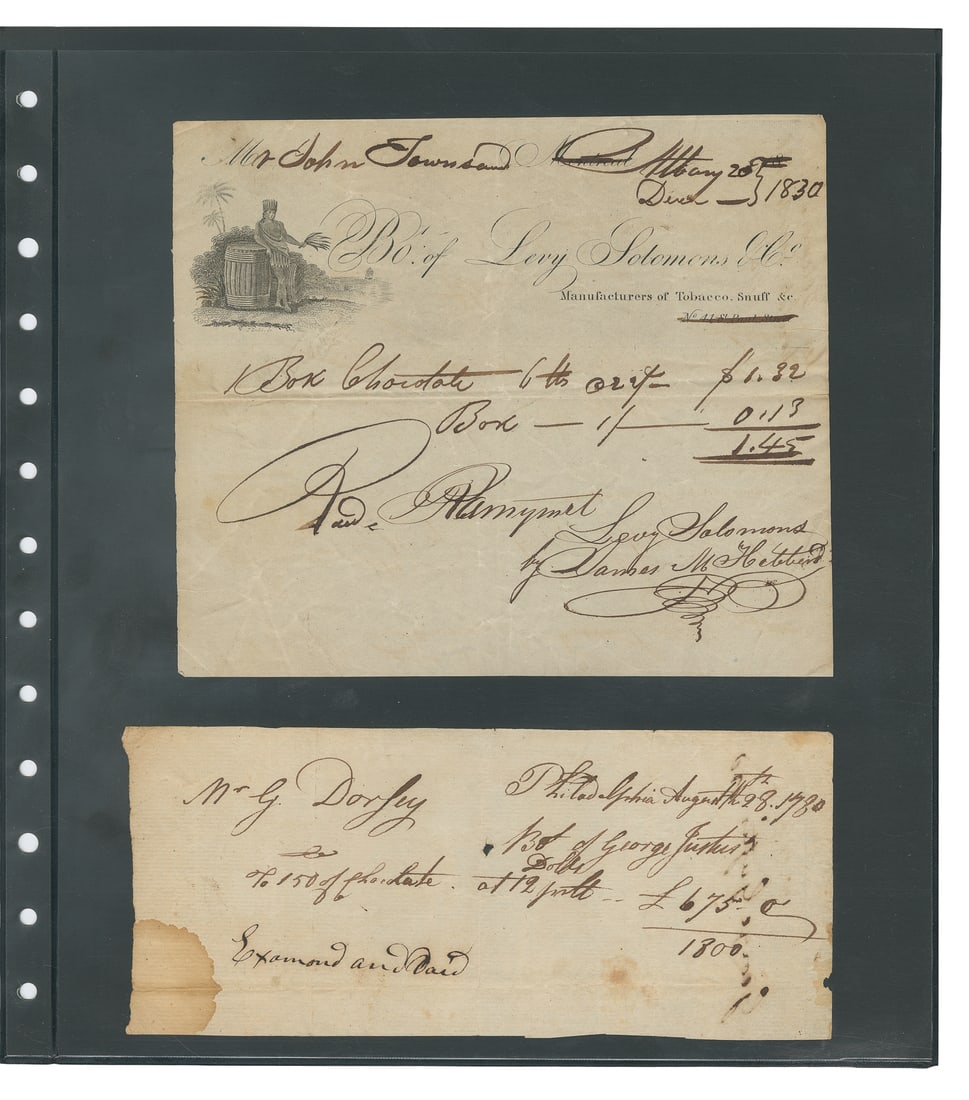 Mr John Townsend Albany 28th
Decr 1830
Bo.t of Levy Solomons & Co.
Manufacturers of Tobacco, Snuff &c.
No. 41 St. Paul Street
1 Box Chocolate 6 lb @ 22 $1.32
Box — 1/ — 0.13
1.45
Recd. Paymment
Levy Solomons
by James M Hebberd
Mr G. Dorsey Philadelphia August th 28. 1780
Bot of George Justus
Dolls
To 150 lb of Chocolate at 12 pr lb £ 675 0
1800
Examond and Paid